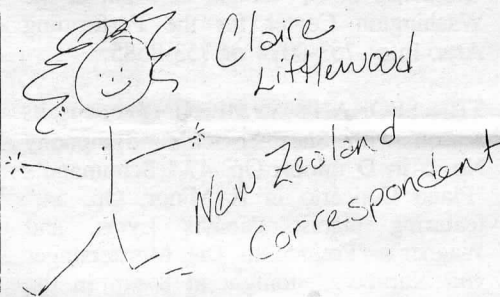 Claire
Littlewood
New Zealand
Correspondent